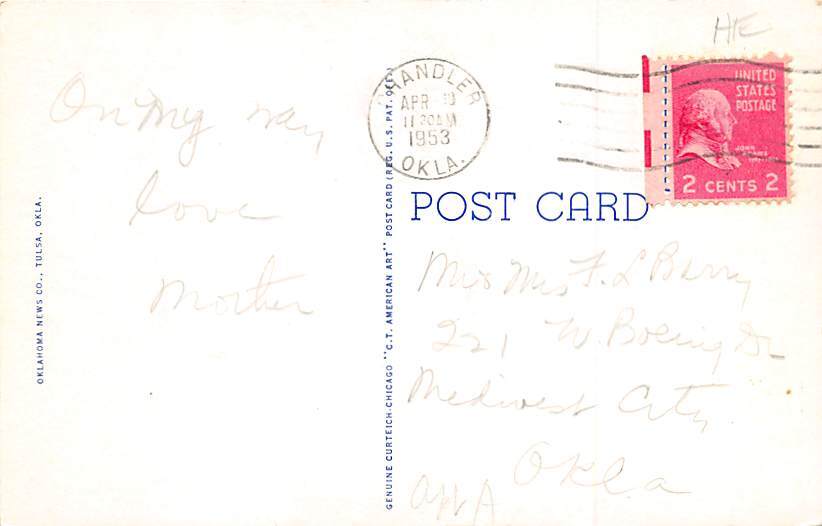 HE
On my way
love
Mother
OKLAHOMA NEWS CO., TULSA, OKLA.
GENUINE CURTEICH-CHICAGO "C.T. AMERICAN ART" POST CARD (REG. U.S. PAT. OFF.)
CHANDLER
APR
1120AM
1953
OKLA.
UNITED
STATES
POSTAGE
JOHN
ADAMS
2 CENTS 2
POST CARD
Mrs F. L Barry
221 W. Boeing Dr
Medwest City
Okla